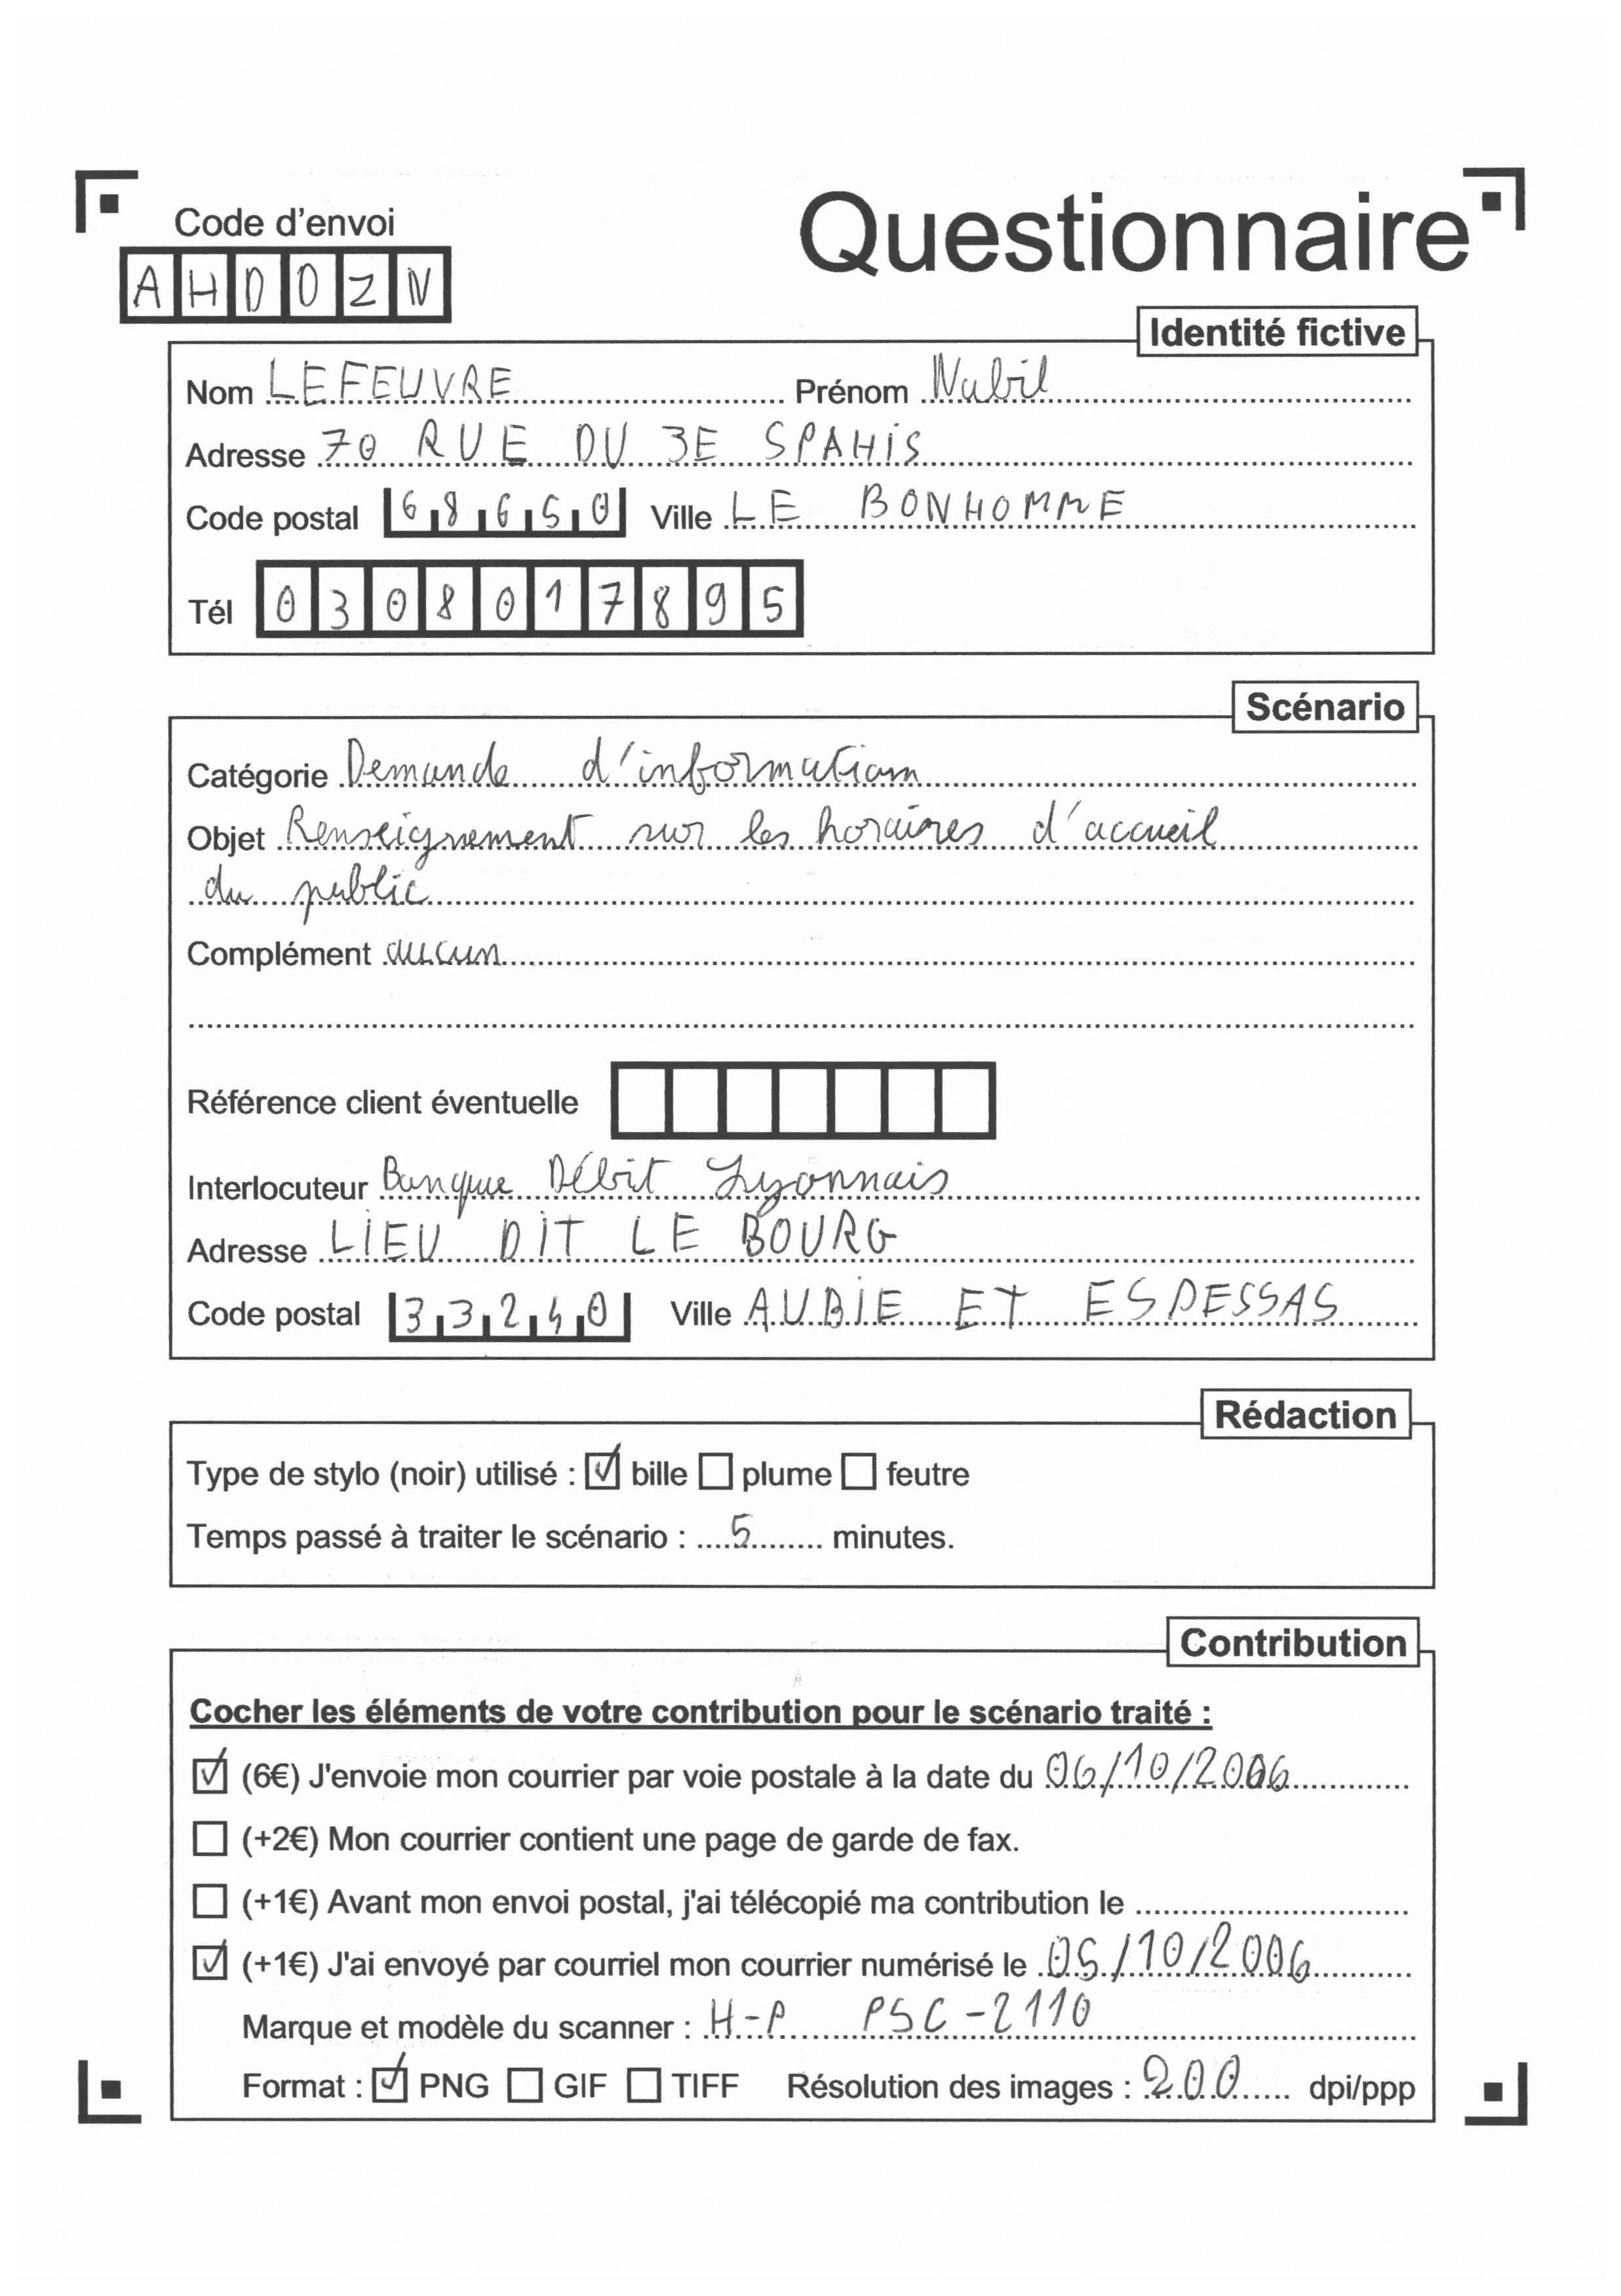 Code d'envoi
Questionnaire
AHDOZN
Identité fictive
Nom LEFEUVRE Prénom Nabil
Adresse 70 RUE DU 3E SPAHIS
Code postal 68650 Ville LE BONHOMME
Tél 0308017895
Scénario
Catégorie Demande d'information
Objet Renseignement sur les horaires d'accueil
du public
Complément aucun
Référence client éventuelle
Interlocuteur Banque Débit Lyonnais
Adresse LIEU DIT LE BOURG
Code postal 33240 Ville AUBIE ET ESPESSAS
Rédaction
Type de stylo (noir) utilisé : bille plume feutre
Temps passé à traiter le scénario : 5 minutes.
Contribution
Cocher les éléments de votre contribution pour le scénario traité :
(6€) J'envoie mon courrier par voie postale à la date du 06/10/2006
(+2€) Mon courrier contient une page de garde de fax.
(+1€) Avant mon envoi postal, j'ai télécopié ma contribution le
(+1€) J'ai envoyé par courriel mon courrier numérisé le 05/10/2006
Marque et modèle du scanner : H-P PSC-2110
Format : PNG GIF TIFF Résolution des images : 200 dpi/ppp